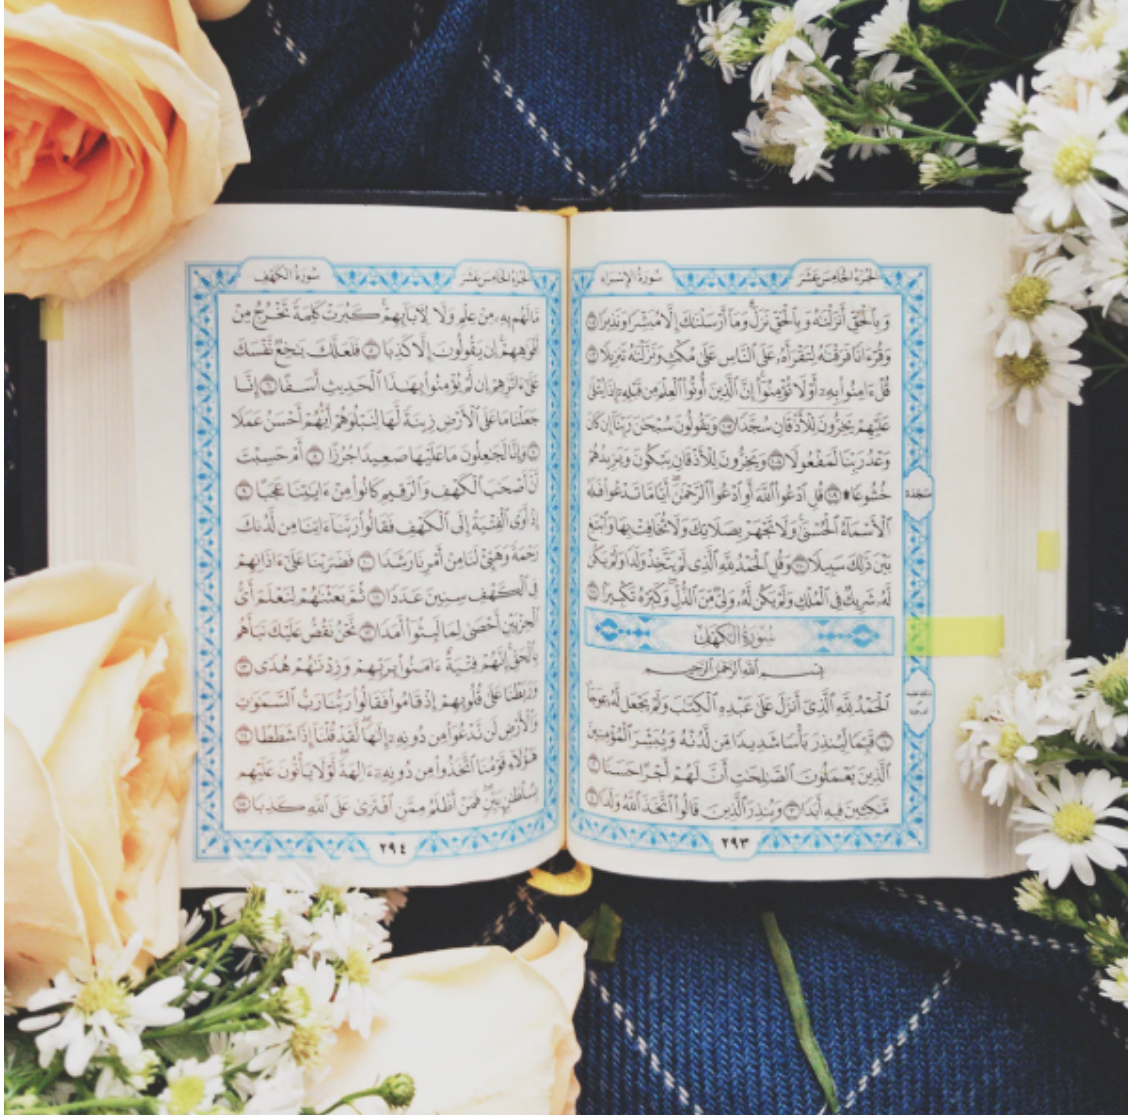 الجزء الخامس عشر
سورة الإسراء
وَبِالْحَقِّ أَنزَلْنَٰهُ وَبِالْحَقِّ نَزَلَ ۗ وَمَا أَرْسَلْنَٰكَ إِلَّا مُبَشِّرًا وَنَذِيرًا ١٠٥
وَقُرْءَانًا فَرَقْنَٰهُ لِتَقْرَأَهُۥ عَلَى النَّاسِ عَلَىٰ مُكْثٍ وَنَزَّلْنَٰهُ تَنزِيلًا ١٠٦
قُلْ ءَامِنُوا۟ بِهِۦٓ أَوْ لَا تُؤْمِنُوٓا۟ ۚ إِنَّ الَّذِينَ أُوتُوا۟ الْعِلْمَ مِن قَبْلِهِۦٓ إِذَا يُتْلَىٰ
عَلَيْهِمْ يَخِرُّونَ لِلْأَذْقَانِ سُجَّدًا ١٠٧ وَيَقُولُونَ سُبْحَٰنَ رَبِّنَآ إِن كَانَ
وَعْدُ رَبِّنَا لَمَفْعُولًا ١٠٨ وَيَخِرُّونَ لِلْأَذْقَانِ يَبْكُونَ وَيَزِيدُهُمْ
خُشُوعًا ۩ ١٠٩ قُلِ ادْعُوا۟ اللَّهَ أَوِ ادْعُوا۟ الرَّحْمَٰنَ ۖ أَيًّا مَّا تَدْعُوا۟ فَلَهُ
سجدة
الْأَسْمَآءُ الْحُسْنَىٰ ۚ وَلَا تَجْهَرْ بِصَلَاتِكَ وَلَا تُخَافِتْ بِهَا وَابْتَغِ
بَيْنَ ذَٰلِكَ سَبِيلًا ١١٠ وَقُلِ الْحَمْدُ لِلَّهِ الَّذِى لَمْ يَتَّخِذْ وَلَدًا وَلَمْ يَكُن
لَّهُۥ شَرِيكٌ فِى الْمُلْكِ وَلَمْ يَكُن لَّهُۥ وَلِىٌّ مِّنَ الذُّلِّ ۖ وَكَبِّرْهُ تَكْبِيرًۢا ١١١
سورة الكهف
بِسْمِ اللَّهِ الرَّحْمَٰنِ الرَّحِيمِ
الْحَمْدُ لِلَّهِ الَّذِىٓ أَنزَلَ عَلَىٰ عَبْدِهِ الْكِتَٰبَ وَلَمْ يَجْعَل لَّهُۥ عِوَجَا
١ قَيِّمًا لِّيُنذِرَ بَأْسًا شَدِيدًا مِّن لَّدُنْهُ وَيُبَشِّرَ الْمُؤْمِنِينَ
الَّذِينَ يَعْمَلُونَ الصَّٰلِحَٰتِ أَنَّ لَهُمْ أَجْرًا حَسَنًا ٢
مَّٰكِثِينَ فِيهِ أَبَدًا ٣ وَيُنذِرَ الَّذِينَ قَالُوا۟ اتَّخَذَ اللَّهُ وَلَدًا ٤
٢٩٣
الجزء الخامس عشر
سورة الكهف
مَّا لَهُم بِهِۦ مِنْ عِلْمٍ وَلَا لِءَابَآئِهِمْ ۚ كَبُرَتْ كَلِمَةً تَخْرُجُ مِنْ
أَفْوَٰهِهِمْ ۚ إِن يَقُولُونَ إِلَّا كَذِبًا ٥ فَلَعَلَّكَ بَٰخِعٌ نَّفْسَكَ
عَلَىٰٓ ءَاثَٰرِهِمْ إِن لَّمْ يُؤْمِنُوا۟ بِهَٰذَا الْحَدِيثِ أَسَفًا ٦ إِنَّا
جَعَلْنَا مَا عَلَى الْأَرْضِ زِينَةً لَّهَا لِنَبْلُوَهُمْ أَيُّهُمْ أَحْسَنُ عَمَلًا
٧ وَإِنَّا لَجَٰعِلُونَ مَا عَلَيْهَا صَعِيدًا جُرُزًا ٨ أَمْ حَسِبْتَ
أَنَّ أَصْحَٰبَ الْكَهْفِ وَالرَّقِيمِ كَانُوا۟ مِنْ ءَايَٰتِنَا عَجَبًا ٩
إِذْ أَوَى الْفِتْيَةُ إِلَى الْكَهْفِ فَقَالُوا۟ رَبَّنَآ ءَاتِنَا مِن لَّدُنكَ
رَحْمَةً وَهَيِّئْ لَنَا مِنْ أَمْرِنَا رَشَدًا ١٠ فَضَرَبْنَا عَلَىٰٓ ءَاذَانِهِمْ
فِى الْكَهْفِ سِنِينَ عَدَدًا ١١ ثُمَّ بَعَثْنَٰهُمْ لِنَعْلَمَ أَىُّ
الْحِزْبَيْنِ أَحْصَىٰ لِمَا لَبِثُوٓا۟ أَمَدًا ١٢ نَّحْنُ نَقُصُّ عَلَيْكَ نَبَأَهُم
بِالْحَقِّ ۚ إِنَّهُمْ فِتْيَةٌ ءَامَنُوا۟ بِرَبِّهِمْ وَزِدْنَٰهُمْ هُدًى ١٣
وَرَبَطْنَا عَلَىٰ قُلُوبِهِمْ إِذْ قَامُوا۟ فَقَالُوا۟ رَبُّنَا رَبُّ السَّمَٰوَٰتِ
وَالْأَرْضِ لَن نَّدْعُوَا۟ مِن دُونِهِۦٓ إِلَٰهًا ۖ لَّقَدْ قُلْنَآ إِذًا شَطَطًا ١٤
هَٰٓؤُلَآءِ قَوْمُنَا اتَّخَذُوا۟ مِن دُونِهِۦٓ ءَالِهَةً ۖ لَّوْلَا يَأْتُونَ عَلَيْهِم
بِسُلْطَٰنٍۭ بَيِّنٍ ۖ فَمَنْ أَظْلَمُ مِمَّنِ افْتَرَىٰ عَلَى اللَّهِ كَذِبًا ١٥
٢٩٤